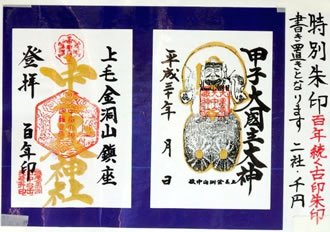 特別朱印 百年続く古印朱印
書き置きとなります 二社・千円
甲子大國主大神
平成三十年 月 日
上毛金洞山鎮座
中之嶽神社
登拝 百年印